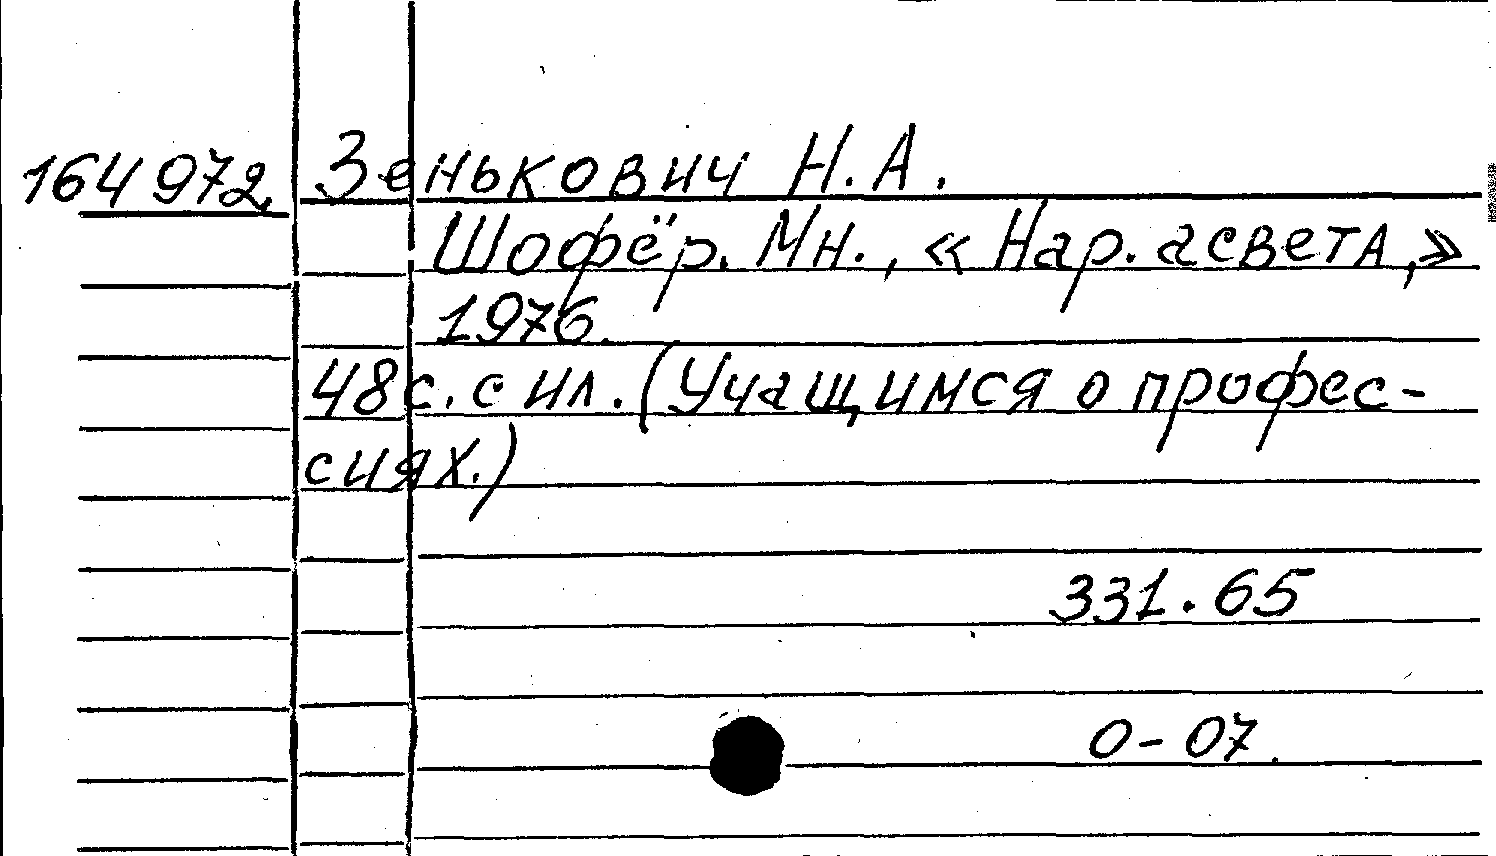 164972. Зенькович Н.А.
Шофёр. Мн., «Нар. асвета,»
1976.
48с. с ил. (Учащимся о профес-
сиях.)
331.65
0-07.